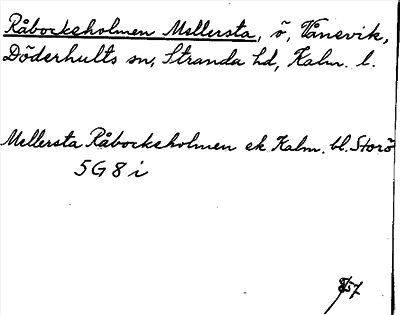 Råbocksholmen Mellersta, ö, Vånevik,
Döderhults sn, Stranda hd, Kalm. l.
Mellersta Råbocksholmen ek Kalm. bl. Storö
5G8i